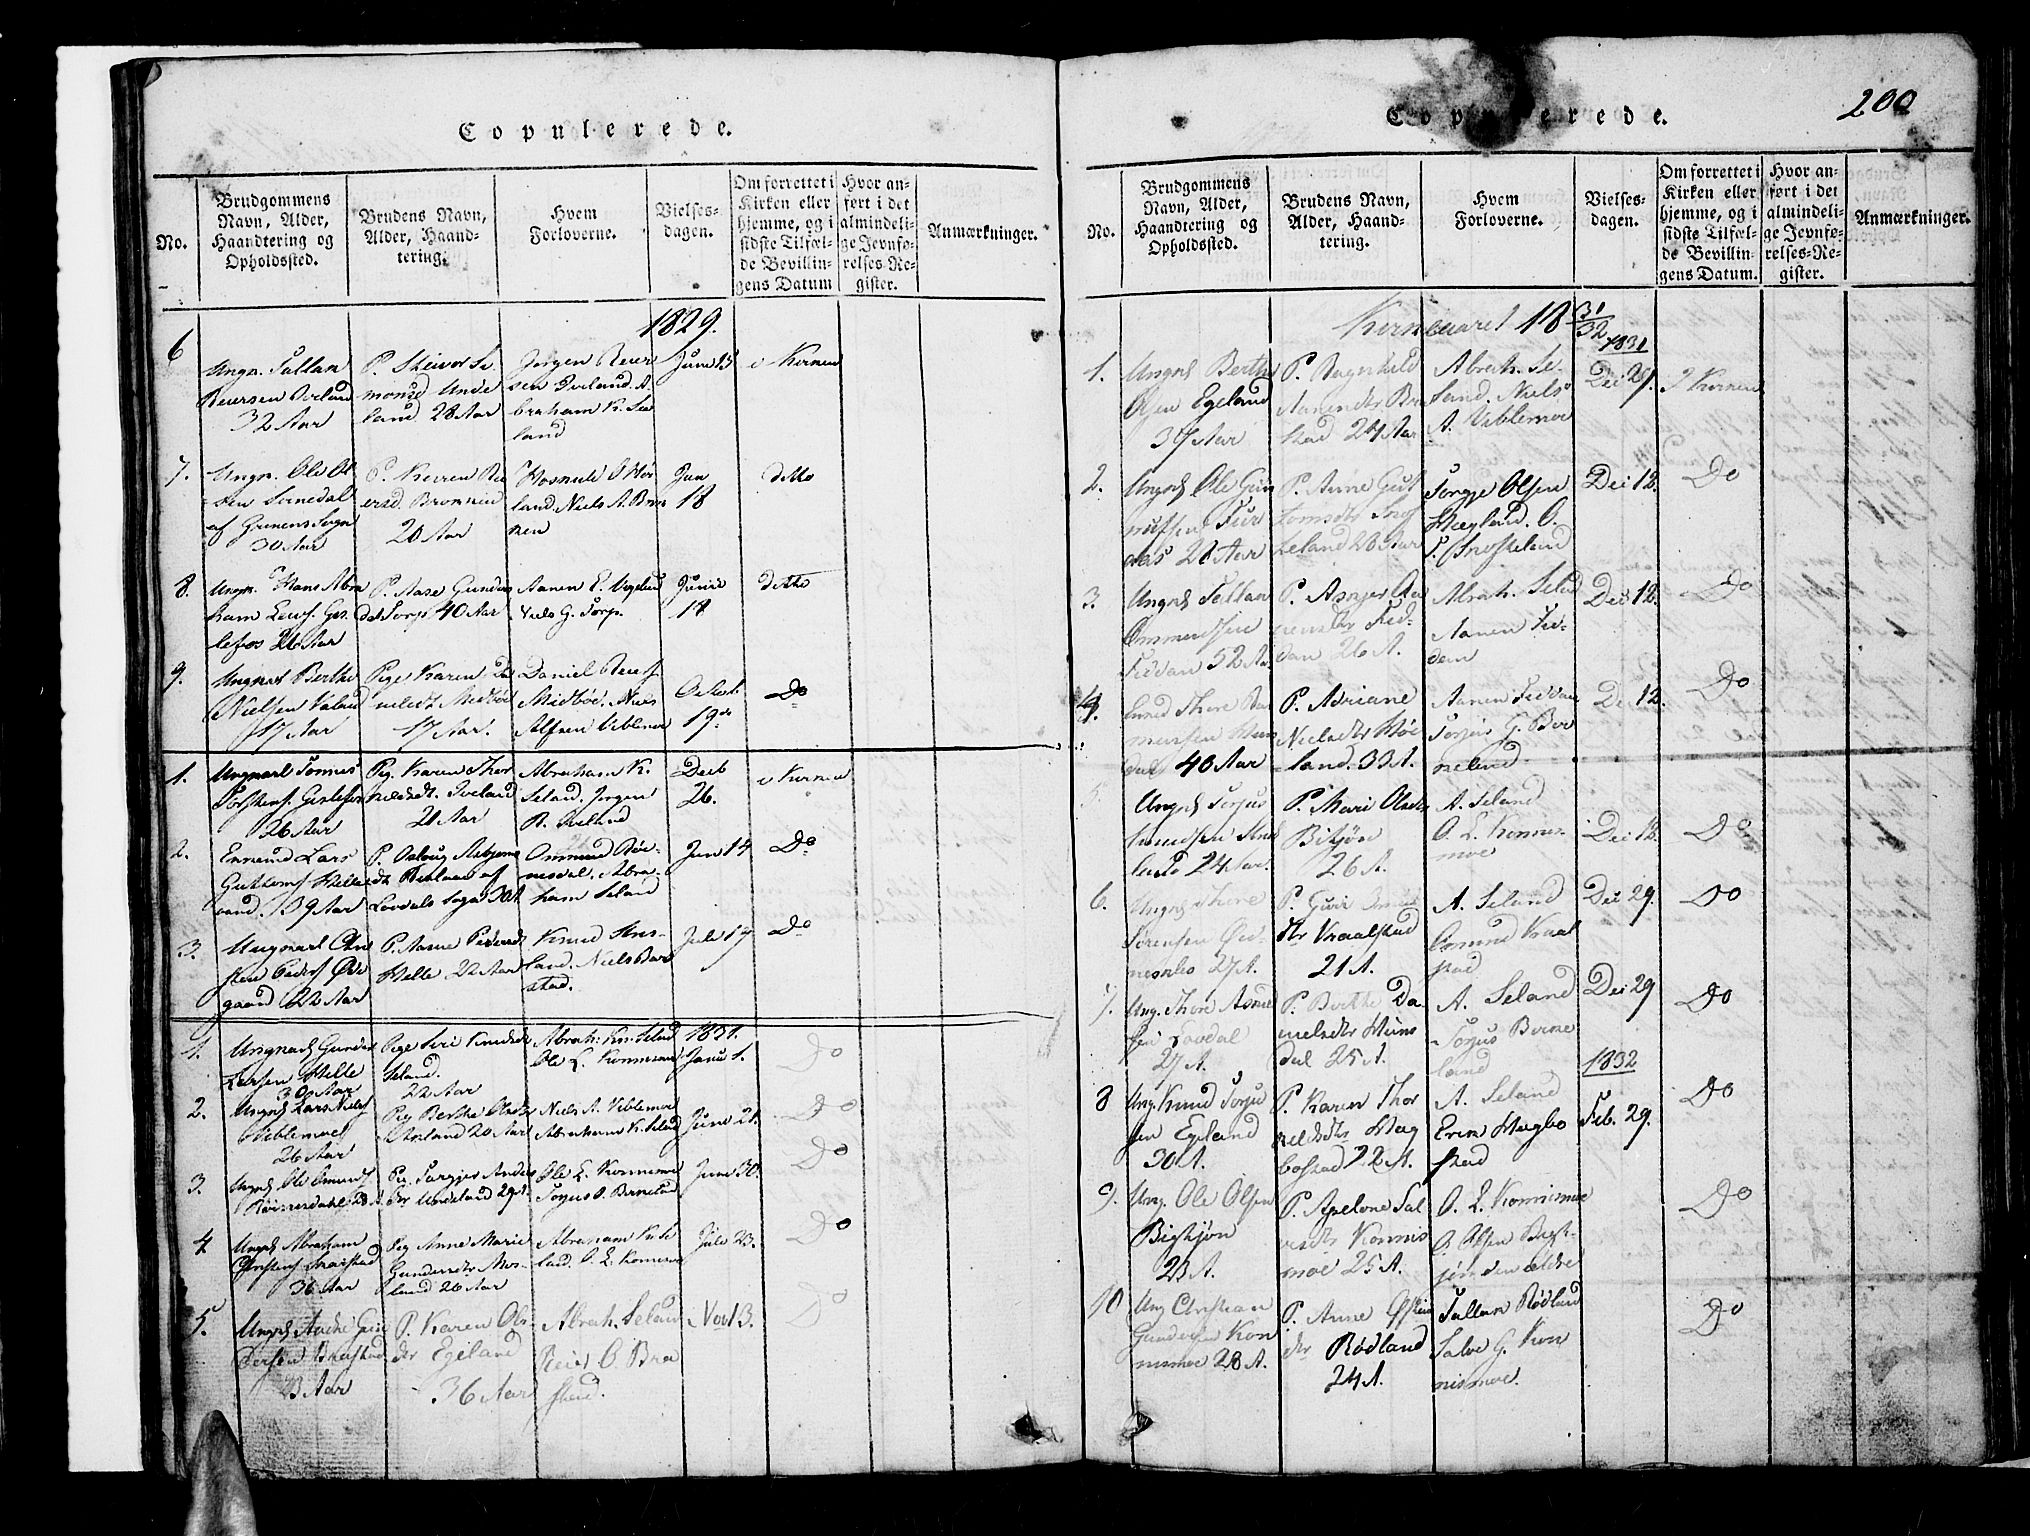 Copulerede.
No.
Brudgommens
Navn, Alder,
Haandtering og
Opholdssted.
Brudens Navn,
Alder, Haand-
tering.
Hvem
Forloverne.
Vielses-
dagen.
Om forrettet i
Kirken eller
hjemme, og i
sidste Tilfæl-
de Bevillin-
gens Datum
Hvor an-
ført i det
almindeli-
ge Jevnfø-
relses-Re-
gister.
Anmærkninger.
1829.
6
Ungn. Tallan
Reiersen Iveland
32 Aar
P. Steivor Si
monsd Unde
land 28 Aar
Jørgen Reier
sen Iveland. A
braham K. Se
land
Juni 15
i Kirken
7.
Ungn. Ole Ol
sen
af Grenens Sogn
30 Aar
P. Karen Rei
ersd. Brømnen
20 Aar
land. Niels A. Brøm
nen
Jun
18
ditto
8.
Ungn. Hans Abra
ham
26 Aar
P. Aase Gunders
dat Torp 40 Aar
Aanen E.
Niels G. Torp.
Junii
18
ditto
9.
Ungkarl Berthe
Nielsen
17 Aar
Pige Karen Da
nieldt Midbøe
17 Aar.
Daniel Reiers
Midbøe. Niels
Alfsen Viblemoe
Octob.
19de
Do
1.
Ungkarl Tønnes
Torstens.
26 Aar
Pig. Karen Thor
kieldsdt. Iveland
21 Aar
Abraham K.
Seland. Jørgen
R. Iveland
Decb
26.
i Kirken
2.
Enkemd Lars
Guttorms Helle
vand. 39 Aar
P. Aslaug Asbjørns
dt
Lovdals Sogn 30 A
Ommund Røi-
nesdal. Abra-
ham Seland
Jun 14
Do
3.
Ungkarl Chri
sten Peders Øde
gaard 22 Aar
P. Anne Pedersdt
Helle 22 Aar
Knud
land. Niels Bra
stad.
Juli 17
Do
1831.
1.
Ungkarl Gunder
Larsen Helle
30 Aar
Pige Siri Knudsdt
Seland.
22 Aar
Abrah: Kn. Selad
Ole L. Konnismoe
Janu 1.
Do
2.
Ungk Lars Niels
Viblemoe
26 Aar
Pig Berthe Olsdt
20 Aar
Niels A. Viblemoe
Abraham K. Selad
Juni 21.
Do
3.
Ungk Ole Omunds
Røinesdahl 28 A.
Pi. Targjer Anders
dtr Undeland 29 A.
Ole L. Konnismoe
Torjus O. Birneland
Juni 30.
Do
4
Ungk Abraham
36 Aar
Pig Anne Marie
Gundersdtr Mos-
land 26 Aar
Abraham K. Se
land. O. L. Konnismoe
Juli 23.
Do
5.
Ungk Andre Gun
dersen Brastad
23 Aar
P. Karen Ols-
dtr Egeland
36 Aar
Abrah. Seland
Reier O. Bra
stad.
Nov 13.
Do
Copulerede.
200
No.
Brudgommens
Navn, Alder,
Haandtering og
Opholdssted.
Brudens Navn,
Alder, Haand-
tering.
Hvem
Forloverne.
Vielses-
dagen.
Om forrettet i
Kirken eller
hjemme, og i
sidste Tilfæl-
de Bevillin-
gens Datum.
Hvor an-
ført i det
almindeli-
ge Jevnfø-
relses-Re-
gister.
Anmærkninger.
Kirkeaaret 18 31/32
1831
1.
Ungk Berthe
Olsen Egeland
37 Aar
P. Ragnhild
Aanensdtr Bra
stad 24 Aar
Abrah. Se-
land. Niels
A. Viblemoe
Dec 29.
I Kirken
2.
Ungk Ole Gun
nufsen Fur
aas 21 Aar
P. Anne Gut
tormsdtr Snøs
eland 28 Aar
Torgje Olsen
Hægland. O.
T. Snøseland
Dec 12.
Do
3.
Ungk Tallan
Ommundsen
Fiedan 52 A.
P. Asnjer Aa
nensdtr Fied
dan 26 A.
Abrah. Selad
Aanen Fie-
dan
Dec 12.
Do
4.
Enkmd Thore Ras
mussen Huns
dal 40 Aar
P. Adriane
Nielsdtr Høi-
land. 33 A.
Aanen Fiedan
Torjus G. Bir
neland
Dec 12.
Do
5.
Ungk Torjus
Knudsen
land 24 Aar.
P. Mari Olsdtr
Bitjøn
26 A.
A. Seland
O. L. Konnis-
moe
Dec 12.
Do
6.
Ungk Thore
Sørensen
27 A.
P. Guri
dtr Kraalstad
21 A.
A. Seland
Omund Kraal
stad
Dec 29.
Do
7.
Ung. Thore
sen Lovdal
27 A.
P. Berthe Da
nielsdtr Huns
dal 25 A.
A. Seland
Torjus Birne
land
Dec 29
Do
1832
8
Ung. Knud Torju
sen Egeland
30 A.
P. Karen Thor
kieldsdtr Hæg
bostad 22 A.
A. Seland
Erik Hægbo
stad
Feb. 29.
Do
9.
Ung. Ole Olsen
Bigtjøn
23 A.
P. Apelone Sal
vesdtr Konnis
moe 25 A.
O. L. Konnismoe
O. Olsen Bigt-
jøn den ældre
Do
10
Ung Christian
Gundersen Kon
nismoe 28 A.
P. Anne Østen
dtr Rødland
24 A.
Tallan Rødland
Salve G. Kon
nismoe.
Do